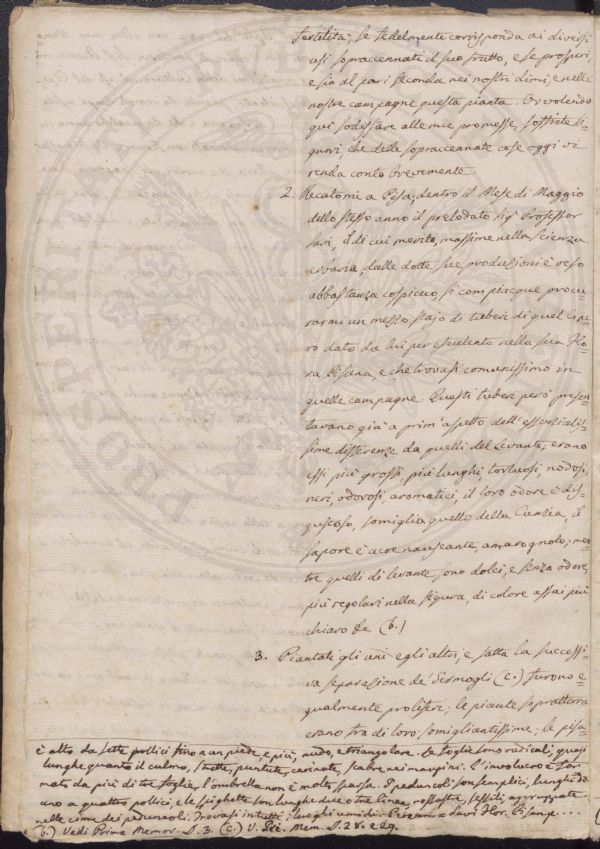 fertilità; se fedelmente corrisponda ai diversi
usi sopraccennati il suo frutto, e se prosperi,
e sia al pari feconda nei nostri climi, e nelle
nostre campagne questa pianta. Or volendo
qui sodisfare alle mie promesse, soffrite Si-
gnori che delle sopraccennate cose oggi vi
renda conto brevemente
2. Recatomi a Pisa, dentro il Mese di Maggio
dello stesso anno il prelodato Sigr Professor
Savi, il di cui merito, massime nella scienza
erbaria, dalle dotte sue produzioni è reso
abbastanza cospicuo, si compiacque procu-
rarmi un mezzo stajo di tuberi di quel Cipe-
ro dato da lui per esculento nella sua Flo-
ra Pisana, e che trovasi comunissimo in
quelle campagne. Questi tuberi però presen-
tavano già a prim'aspetto dell'essenzialis-
sime differenze da quelli del Levante, erano
essi più grossi, più lunghi, tortuosi, nodosi,
neri, odorosi aromatici, il loro odore è dis-
gustoso, somiglia quello della Canfia, il
sapore è acre nauseante, amarognolo; men-
tre quelli di levante sono dolci, e senza odore,
più regolari nella figura, di colore assai più
chiaro &c (b.)
3. Piantati gli uni e gli altri, e fatta la successi-
va separazione de' Germogli (c.) furono e-
gualmente prolifici; le piante sopratterra
erano tra di loro somigliantissime; le pisa-
è alto da sette pollici fino a un piede, e più, nudo, e triangolare. Le foglie sono radicali, quasi
lunghe quanto il culmo, strette, puntute, carinate, scabre nei margini. L'involucro è for-
mato da più di tre foglie, l'ombrella non è molto sparsa. I peduncoli son semplici, lunghi da
uno a quattro pollici, e le spighette son lunghe due o tre linee, rossastre, sessili, aggruppate
nelle cime dei peduncoli. Trovasi in tutti i luoghi umidi. = Savi Flor. Pisana....
(b.) Vedi Prima Memor. §. 3. (c.) V. Pri. Mem. §. 28. e 29.